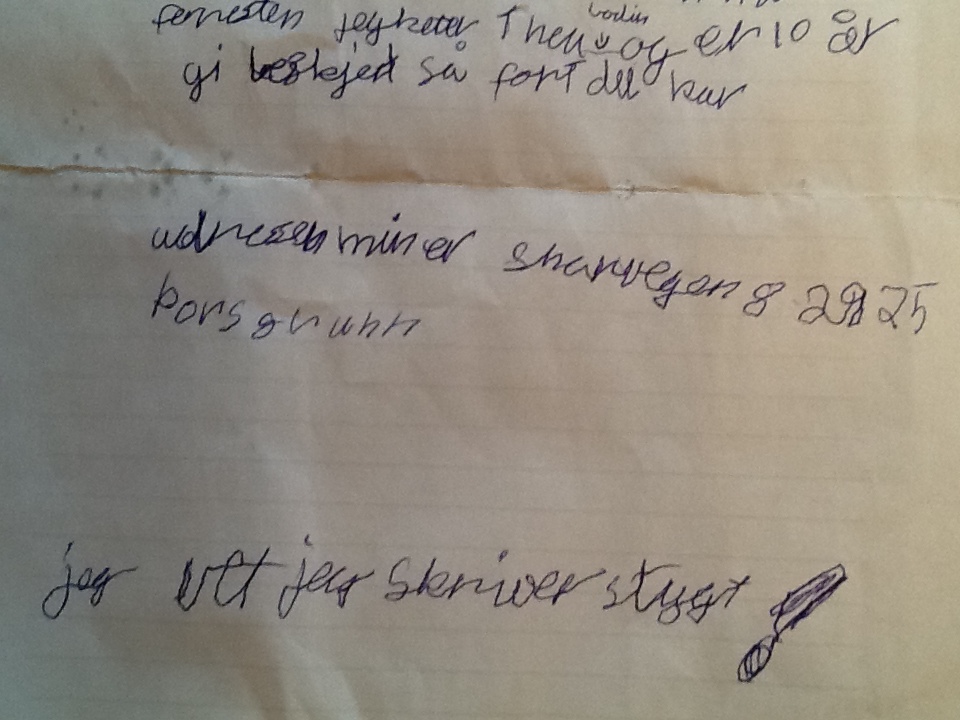 jeg heter Thea og er 10 år
gi beskjed så fort du kan
adressen min er 8 2925
Porsgrunn
jeg vet jeg skriver stygt !